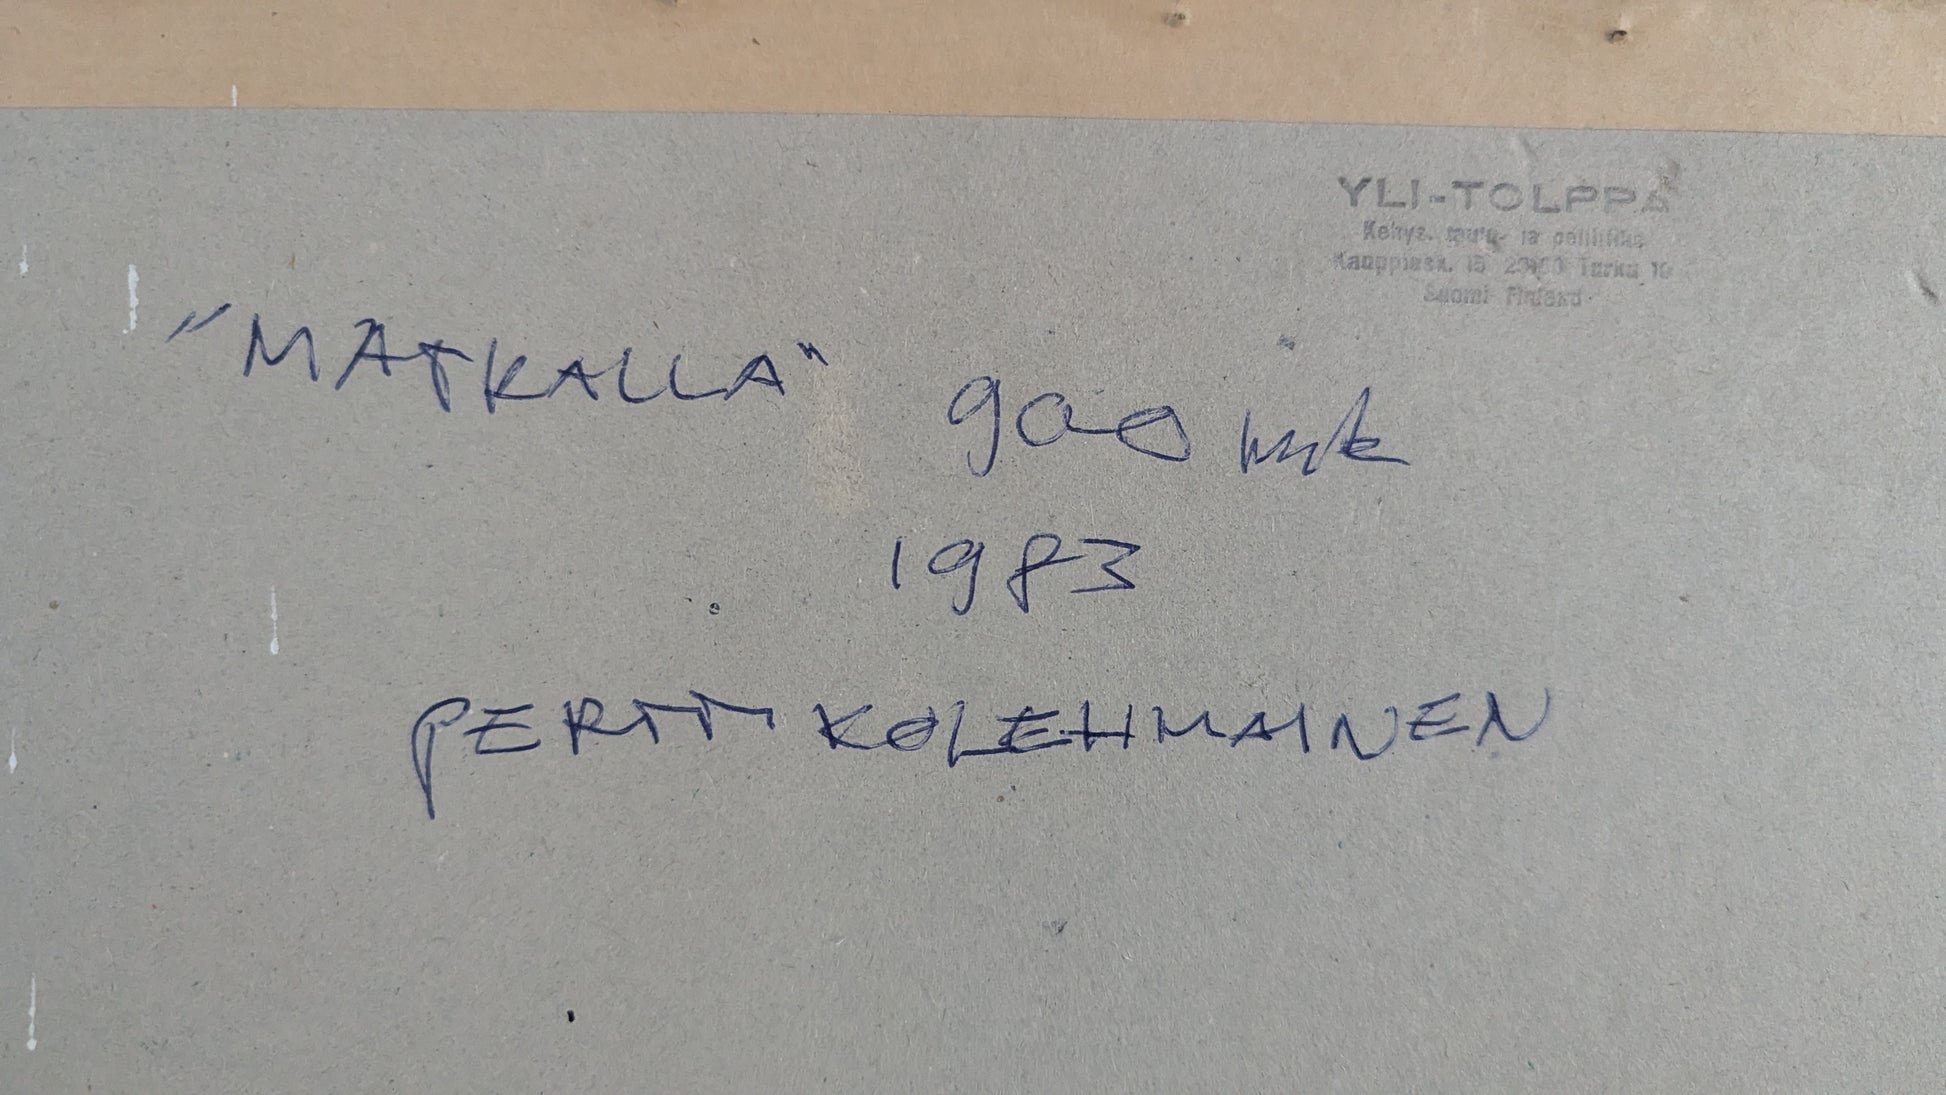 YLI-TOLPPA
Kehys, taulu- ja peililiike
Kauppiask. 15 20100 Turku 10
Suomi Finland
"MATKALLA" 900 mk
1983
PERTTI KOLEHMAINEN